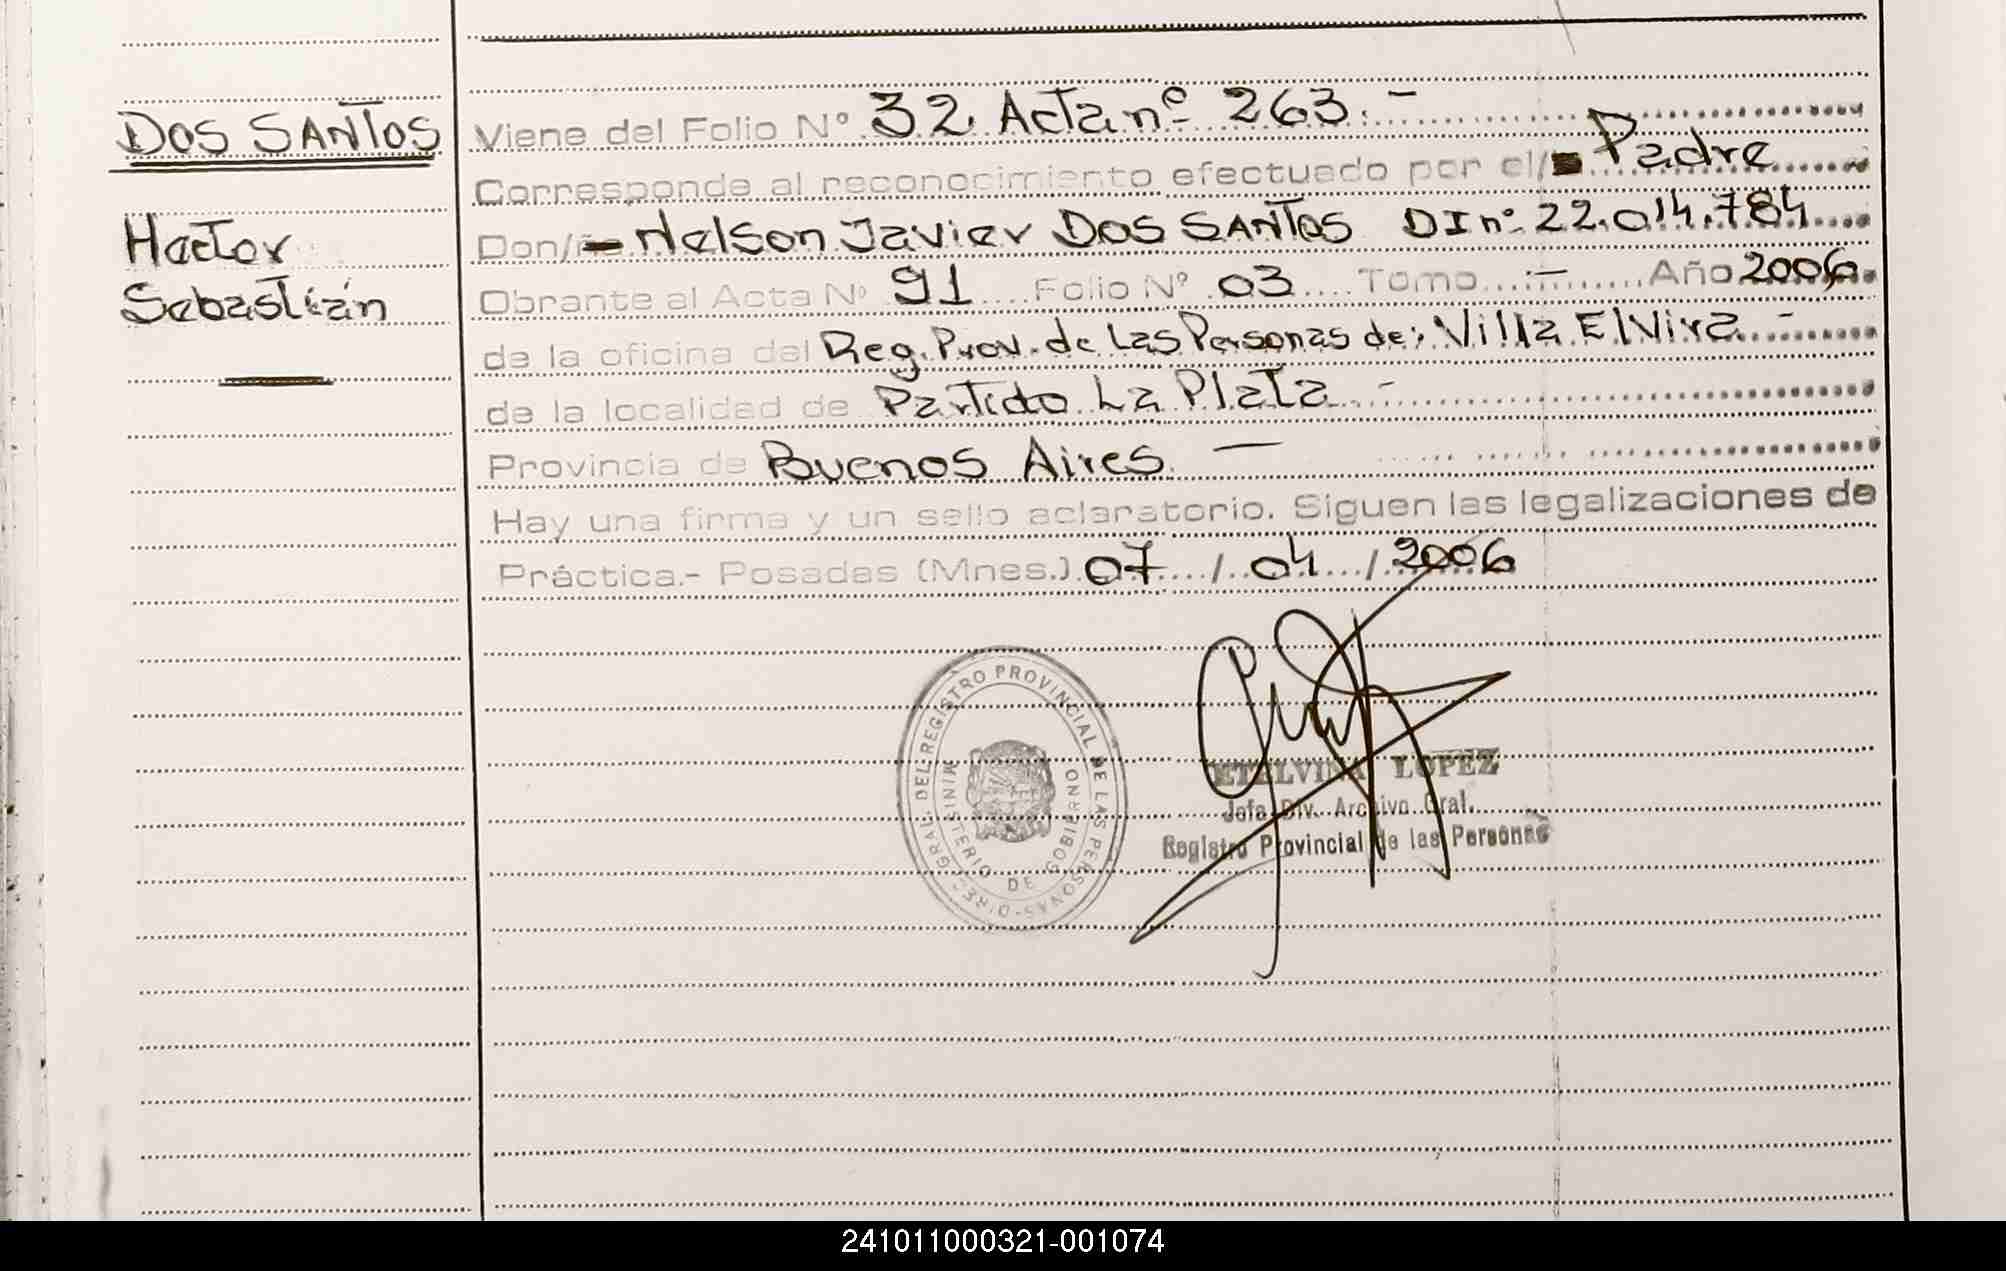 DOS SANTOS
Hector
Sebastián
Viene del Folio Nº 32 Acta nº 263.-
Corresponde al reconocimiento efectuado por el/ Padre
Don/ Nelson Javier DOS SANTOS DI nº 22.014.784
Obrante al Acta Nº 91 Folio Nº 03 Tomo .-. Año 2006.
de la oficina del Reg. Prov. de Las Personas de: Villa Elvira -
de la localidad de Partido La Plata. -
Provincia de Buenos Aires. -
Hay una firma y un sello aclaratorio. Siguen las legalizaciones de
Práctica.- Posadas (Mnes.) 07 / 04 / 2006
REGISTRO PROVINCIAL DE LAS PERSONAS - DIREC. GRAL. DEL
MINISTERIO DE GOBIERNO
ETELVINA LOPEZ
Jefa Div. Archivo Gral.
Registro Provincial de las Personas
241011000321-001074